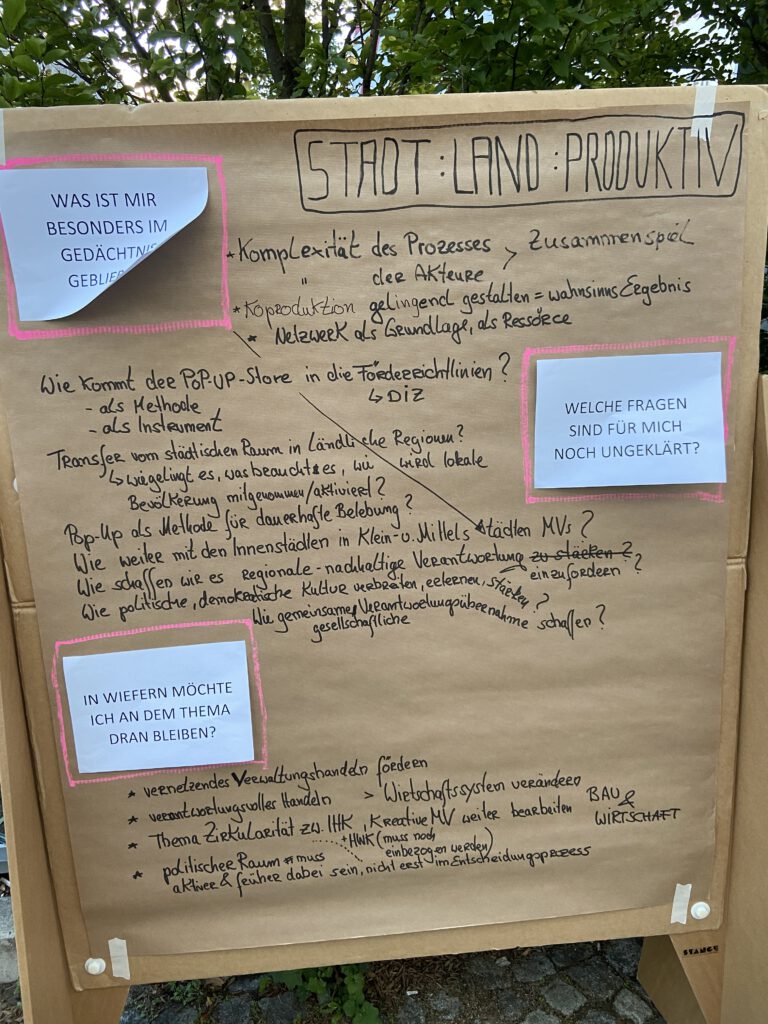 STADT : LAND : PRODUKTIV
WAS IST MIR
BESONDERS IM
GEDÄCHTNIS
GEBLIEB
* Komplexität des Prozesses > Zusammenspiel
" der Akteure
* Koproduktion gelingend gestalten = wahnsinns Ergebnis
* Netzwerk als Grundlage, als Ressource
Wie kommt der Pop-Up-Store in die Förderrichtlinien?
- als Methode ↳ DIZ
- als Instrument
WELCHE FRAGEN
SIND FÜR MICH
NOCH UNGEKLÄRT?
Transfer vom städtischen Raum in Ländliche Regionen?
↳ wie gelingt es, was braucht es, wie wird lokale
Bevölkerung mitgenommen/aktiviert?
Pop-Up als Methode für dauerhafte Belebung?
Wie weiter mit den Innenstädten in Klein- u. Mittelstädten MVs?
Wie schaffen wir es regionale-nachhaltige Verantwortung zu stärken?
einzufordern?
Wie politische, demokratische Kultur verbreiten, erlernen, stärken?
Wie gemeinsame Verantwortungsübernahme schaffen?
gesellschaftliche
IN WIEFERN MÖCHTE
ICH AN DEM THEMA
DRAN BLEIBEN?
* vernetzendes Verwaltungshandeln fördern
* verantwortungsvolles Handeln > Wirtschaftssystem verändern
* Thema Zirkularität zw. IHK, Kreative MV weiter bearbeiten BAU & WIRTSCHAFT
+ HWK (muss noch
einbezogen werden)
* politischer Raum muss
aktiver & früher dabei sein, nicht erst im Entscheidungsprozess
STANGE